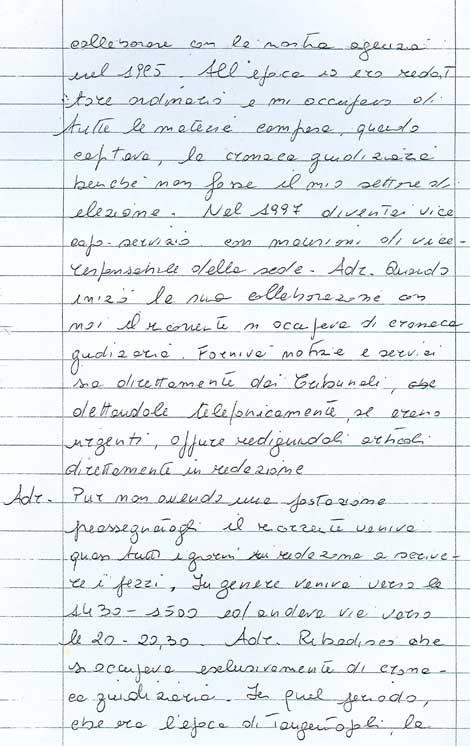 collaborare con la nostra agenzia
nel 1995. All'epoca io ero redat
tore ordinario e mi occupavo di
tutte le materie compresa, quando
capitava, la cronaca giudiziaria
benché non fosse il mio settore di
elezione. Nel 1997 diventai vice
capo-servizio con mansioni di vice-
responsabile della sede. Adr. Quando
iniziò la sua collaborazione con
noi il ricorrente si occupava di cronaca
giudiziaria. Forniva notizie e servizi
sia direttamente dai Tribunali,
dettandole telefonicamente, se erano
urgenti, oppure redigendoli articoli
direttamente in redazione
Adr. Pur non avendo una postazione
preassegnatagli il ricorrente veniva
quasi tutti i giorni in redazione a scrive-
re i pezzi. In genere veniva verso le
1430-1500 ed andava via verso
le 20-20,30. Adr. Ribadisco che
si occupava esclusivamente di crona-
ca giudiziaria. In quel periodo,
che era l'epoca di Tangentopoli, la